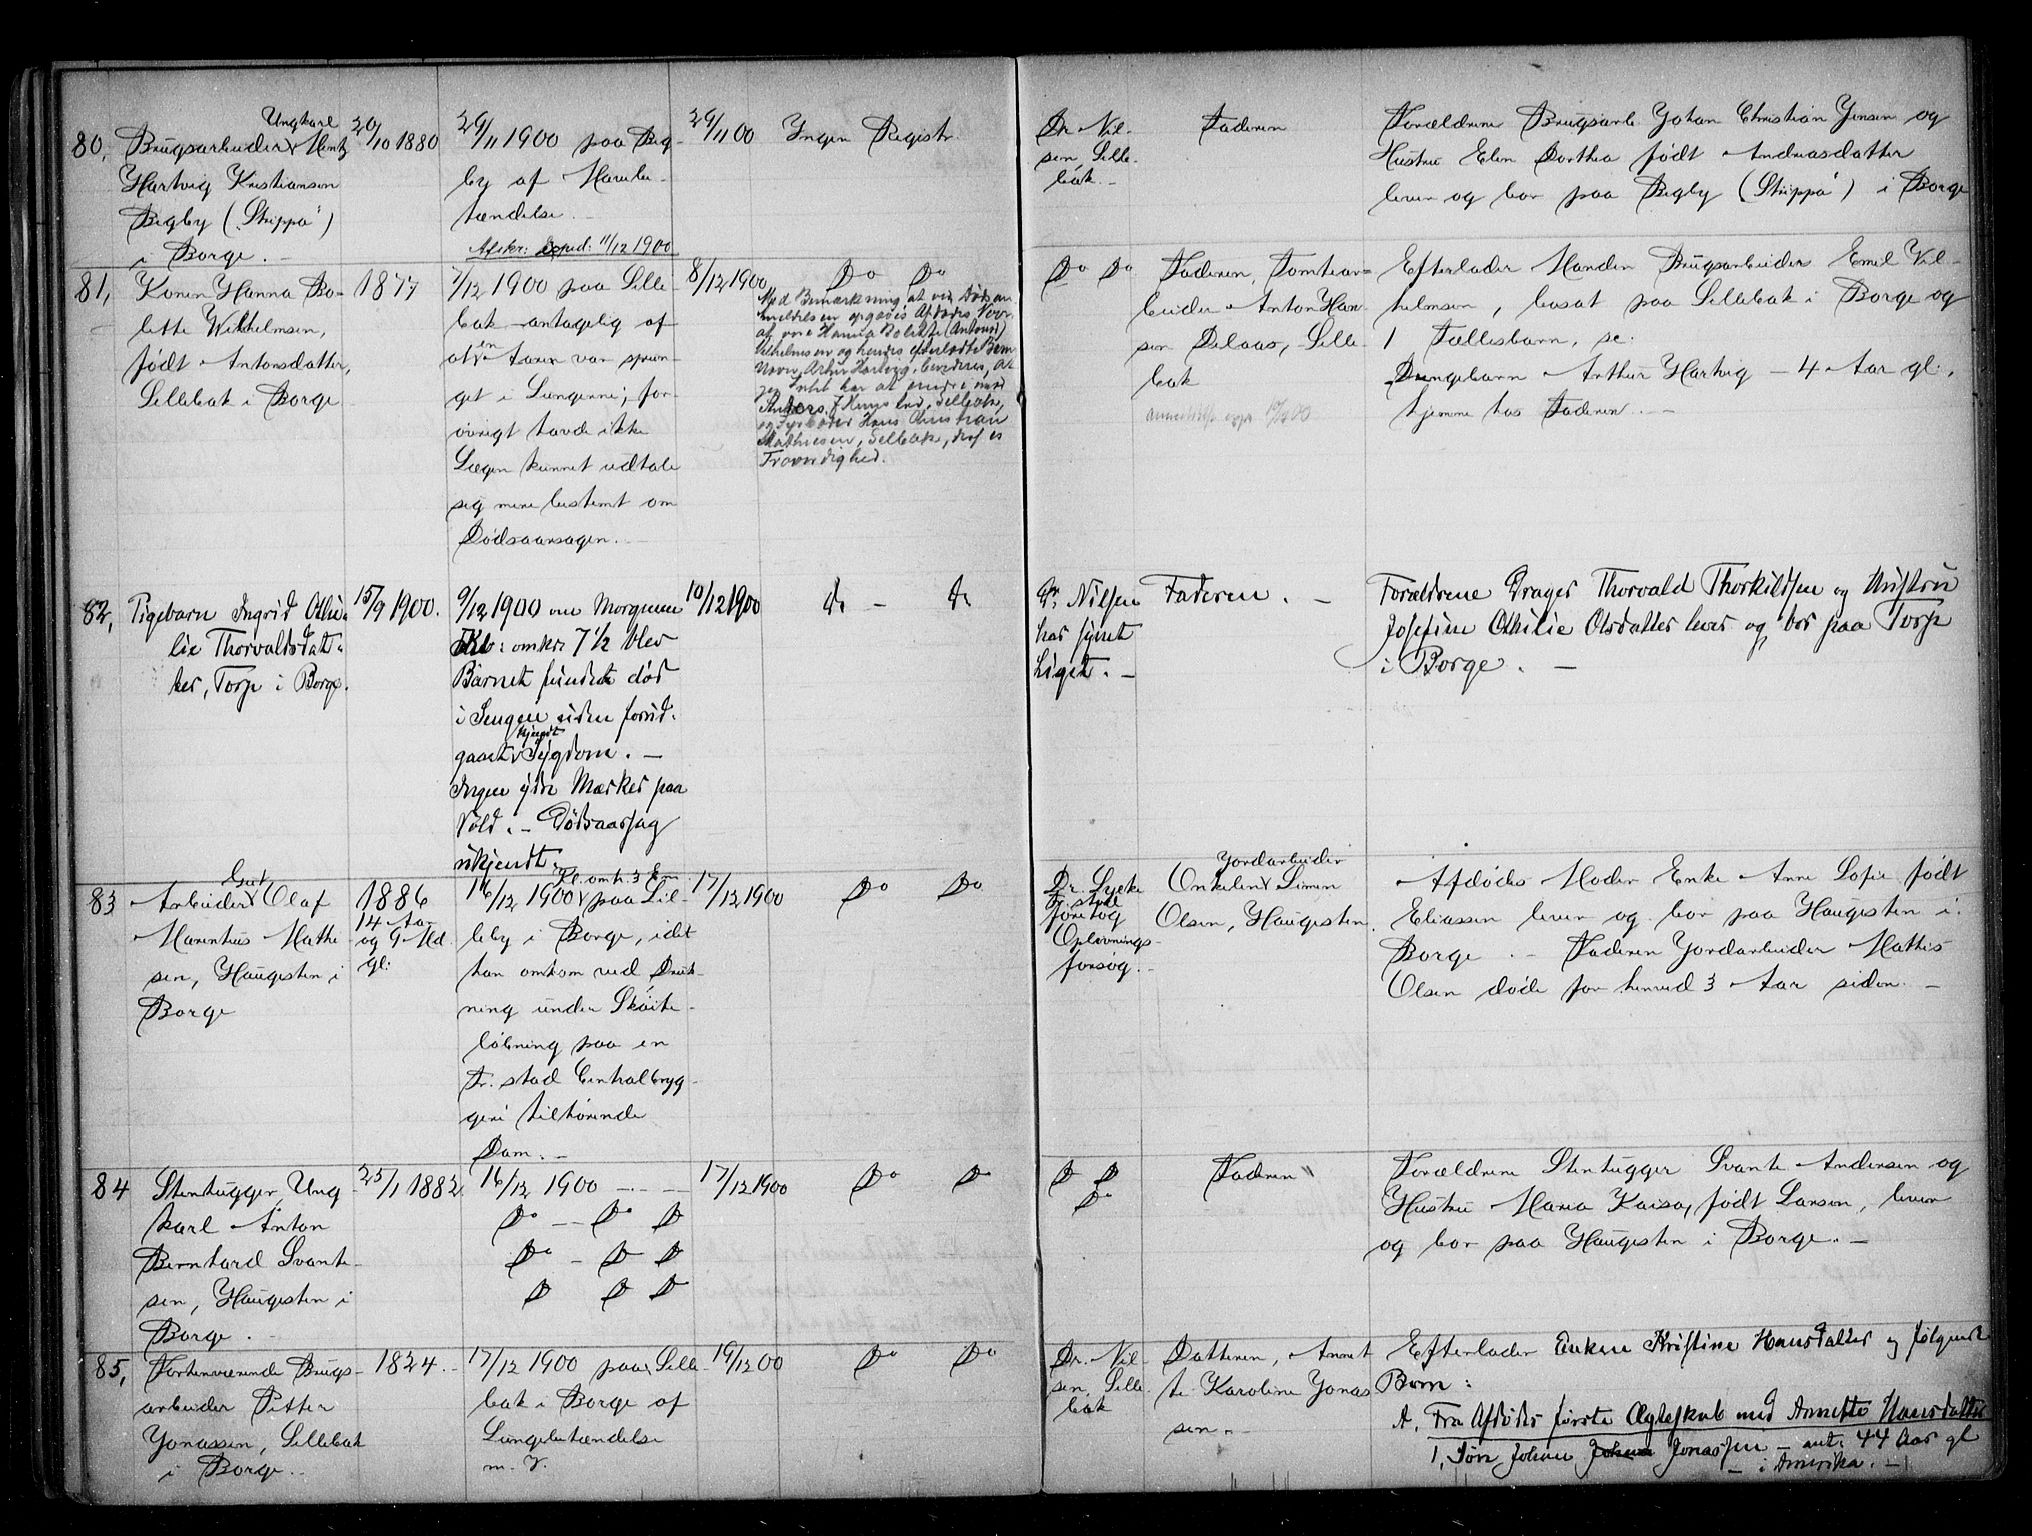 80, Brugsarbeider Ungkarl Hentz
Hartvig Kristiansen
Begby ("Skippa")
i Borge. -
20/10 1880
29/11 1900 paa Beg-
by af Marvbe-
tændelse. -
Afskr: exped: 11/12 1900
29/11 00
Ingen Registr.
Dr. Nil-
sen, Selle-
bak. -
Faderen
Forældrene Brugsarb. Johan Christian Jensen og
Hustru Elen Dorthea født Andreasdatter
lever og bor paa Begby ("Skippa") i Borge
81, Konen Hanna Bo-
lette Wilhelmsen,
født Antonsdatter,
Sellebak i Borge
1877
7/12 1900 paa Selle-
bak antagelig af
at en taare var sprun-
get i Lungerne; for-
øvrigt havde ikke
Lægen kunnet udtale
sig mere bestemt om
Dødsaarsagen. -
8/12 1900
Do Do
Med Bemærkning at ved Dødsan-
meldelsen opgaves Afdødes Navn
at være Hanna Bolette (Antonsd)
Vilhelmsen og hendes efterladte Barn
Navn, Artur Hartvig, bevidnes, At
jeg Intet har at endre, med
Mathiesen, Sellebak, drages
Troværdighed.
Do Do
Faderen, Tomtear-
beider Anton Han-
sen Dalaas, Selle-
bak
Efterlader Manden Brugsarbeider Emil Vil-
helmsen, bosat paa Sellebak i Borge og
1 Fællesbarn, se:
Drengebarn Arthur Hartvig - 4 Aar gl:,
hjemme hos Faderen. -
82, Pigebarn Ingrid Othi-
lie Thorvaldsdat-
ter, Torp i Borge.
15/9 1900.
9/12 1900 om Morgenen
Kl: omkr. 7 1/2 blev
Barnet fundet død
i Sengen uden forud-
gaaet kjendt Sygdom. -
Ingen ydre Mærker paa
Vold. - Dødsaarsag
ukjendt.
10/12 1900
do - do
Dr. Nilsen
har synet
Liget. -
Faderen. -
Forældrene Drager Thorvald Thorkildsen og Hustru
Josefine Othilie Olsdatter lever og bor paa Torp
i Borge. -
83 Arbeider Gut Olaf
Marentius Mathi-
sen, Haugesten i
Borge
1886
14 Aar
og 9 Md.
gl:
16/12 1900 Kl. omtr. 3 Em. paa Lil-
leby i Borge, idet
han omkom ved Druk-
ning under Skøite-
løbning paa en
Fr. stad Centralbryg-
geri tilhørende
Dam. -
17/12 1900
Do Do
Dr. Lycke
Fr. stad
foretog
Oplivnings-
forsøg. -
Onkelen Jordarbeider Simen
Olsen, Haugesten.
Afdødes Moder Enke Anne Sofie født
Eliassen lever og bor paa Haugesten i
Borge. - Faderen Jordarbeider Mathis
Olsen døde for henved 3 Aar siden. -
84 Stenhugger, Ung-
karl Anton
Bernhard Svante-
sen, Haugesten i
Borge. -
25/1 1882
16/12 1900 - . - -
Do - Do Do
Do - Do Do
Do Do Do
17/12 1900
Do Do
Do Do
Do
Faderen
Forældrene Stenhugger Svante Andersen og
Hustru Maria Kaisa, født Larsen, lever
og bor paa Haugesten i Borge. -
85, Forhenværende Brugs-
arbeider Petter
Jonassen, Sellebak
i Borge. -
1824. -
17/12 1900 paa Selle-
bak i Borge af
Lungebetændelse
m. V.
19/12 00
Do Do
Dr. Nil-
sen, Selle-
bak
Datteren, Annet-
te Karoline Jonas-
sen. -
Efterlader Enken Kristine Hansdatter og følgende
Børn:
A. Fra Afdødes første Ægteskab med Annette Hansdatter
1, Søn, Johan Johan Jonassen - ant: 44 Aar gl
- i Amerika. -